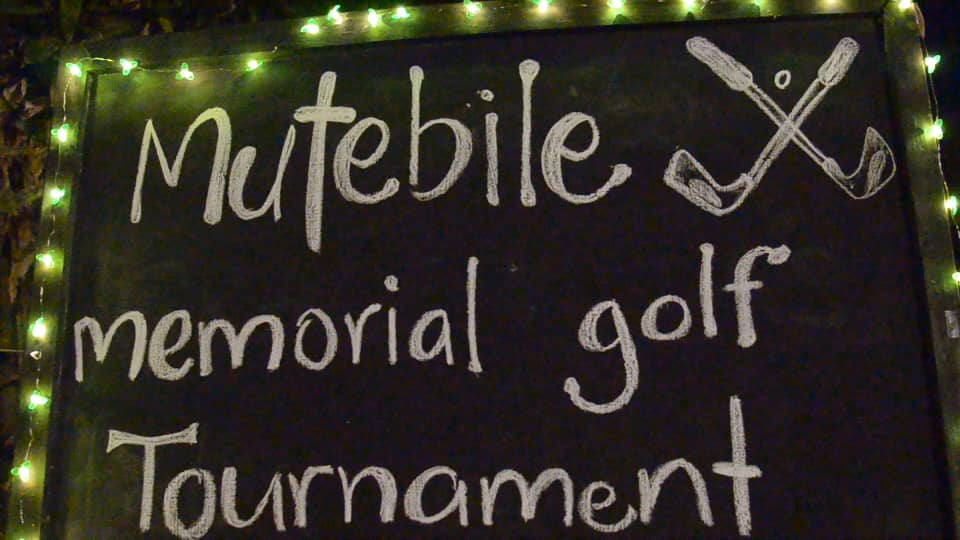 Mutebile
memorial golf
Tournament